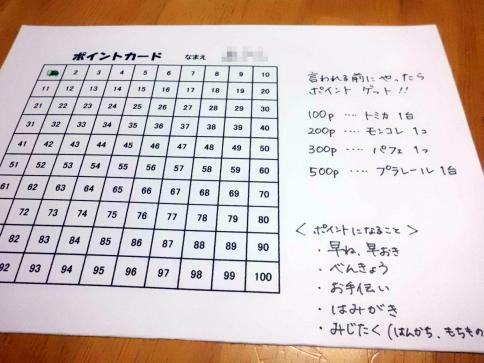 ポイントカード なまえ
2 3 4 5 6 7 8 9 10
11 12 13 14 15 16 17 18 19 20
21 22 23 24 25 26 27 28 29 30
31 32 33 34 35 36 37 38 39 40
41 42 43 44 45 46 47 48 49 50
51 52 53 54 55 56 57 58 59 60
61 62 63 64 65 66 67 68 69 70
72 73 74 75 76 77 78 79 80
82 83 84 85 86 87 88 89 90
92 93 94 95 96 97 98 99 100
言われる前にやったら
ポイント ゲット!!
100p ‥‥ トミカ 1台
200p ‥‥ モンコレ 1コ
300p ‥‥ パフェ 1つ
500p ‥‥ プラレール 1台
<ポイントになること>
・早ね、早おき
・べんきょう
・お手伝い
・はみがき
・みじたく(はんかち、もちもの